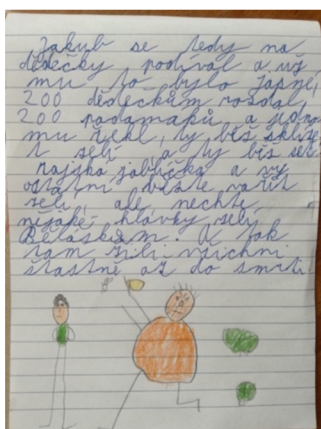 Jakub se tedy na
dědečky podíval a už
mu to bylo jasné,
200 dědečkům rozdal
200
mu řekl, ty běž sklize
t zelí a ty běž
rajská jablíčka a vy
ostatní běžte vařit
zelí, ale nechte
nějaké hlávky zelí
Běláskům. A tak
tam žili všichni
šťastně až do smrti.